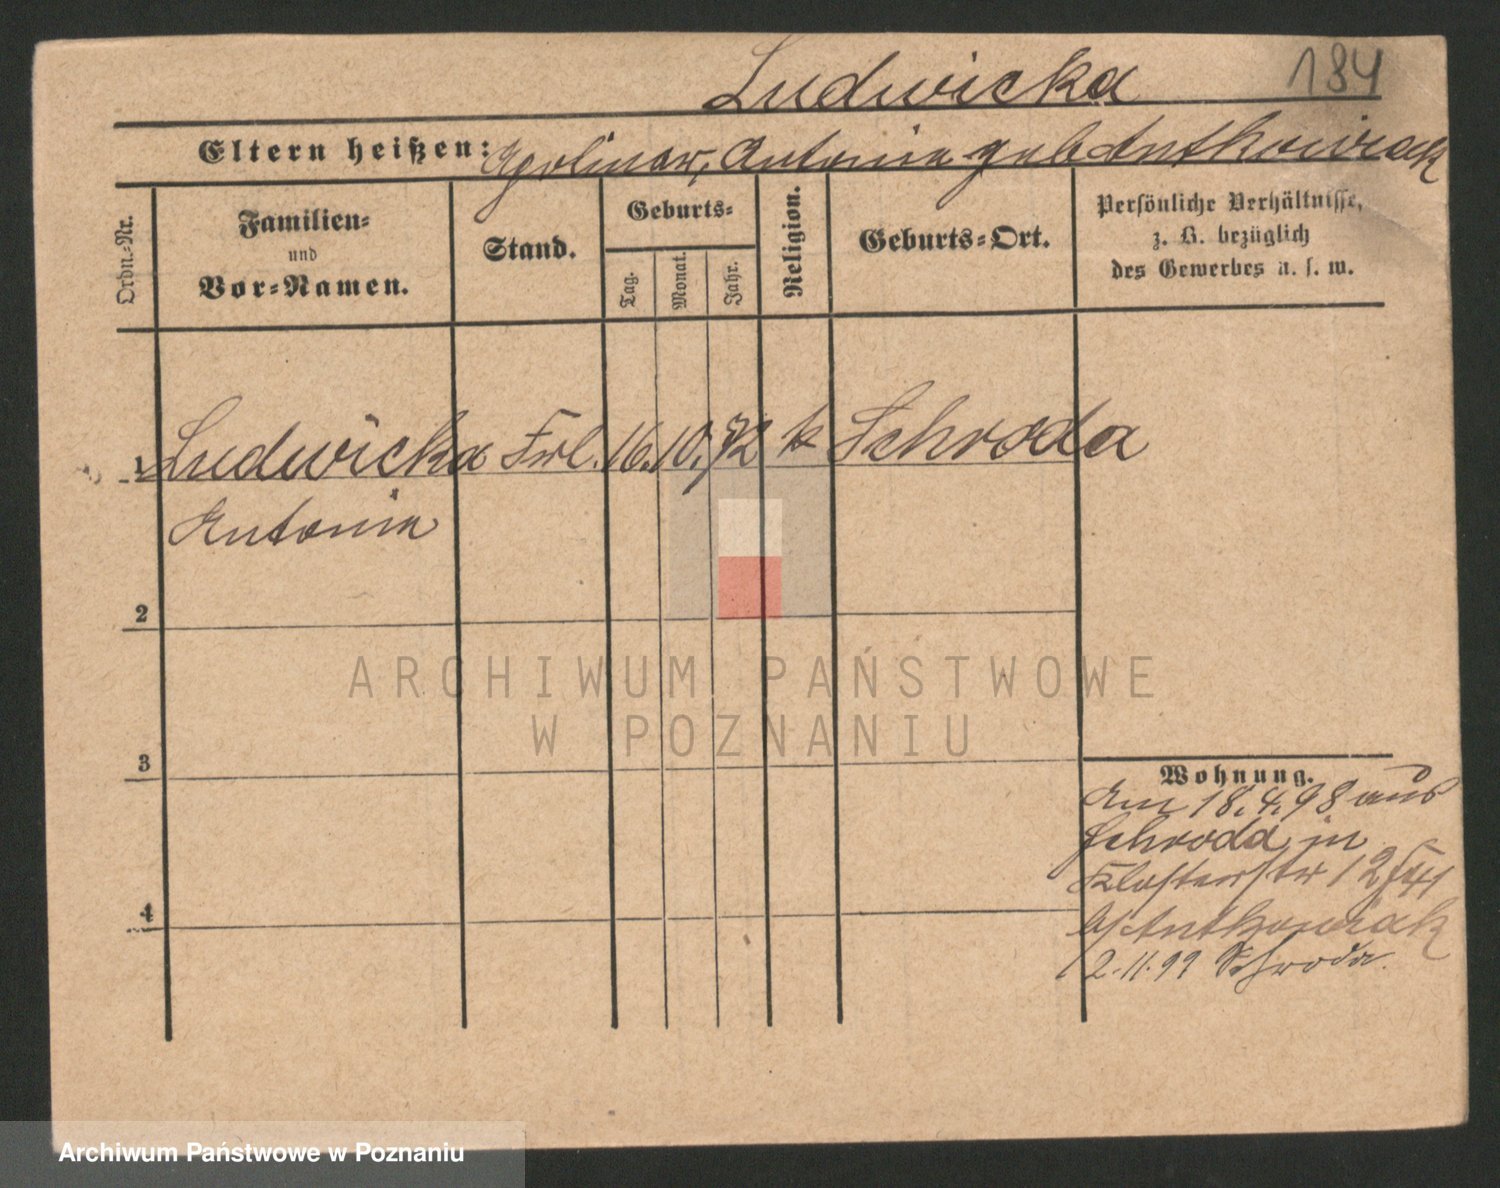 Ludwicka 184
Eltern heißen: Apolinar, Antonia geb Antkowiak
Ordn.-Nr.
Familien-
und
Vor-Namen.
Stand.
Geburts-
Tag.
Monat.
Jahr.
Religion.
Geburts-Ort.
Persönliche Verhältnisse,
z. B. bezüglich
des Gewerbes u. s. w.
1 Ludwicka Frl. 16. 10. 72 k Schroda
Antonia
2
3
4
ARCHIWUM PAŃSTWOWE
W POZNANIU
Wohnung.
Am 18.4.98 aus
Schroda in
Klosterstr 12
b/Antkowiak
2.11.99 Schroda.
Archiwum Państwowe w Poznaniu